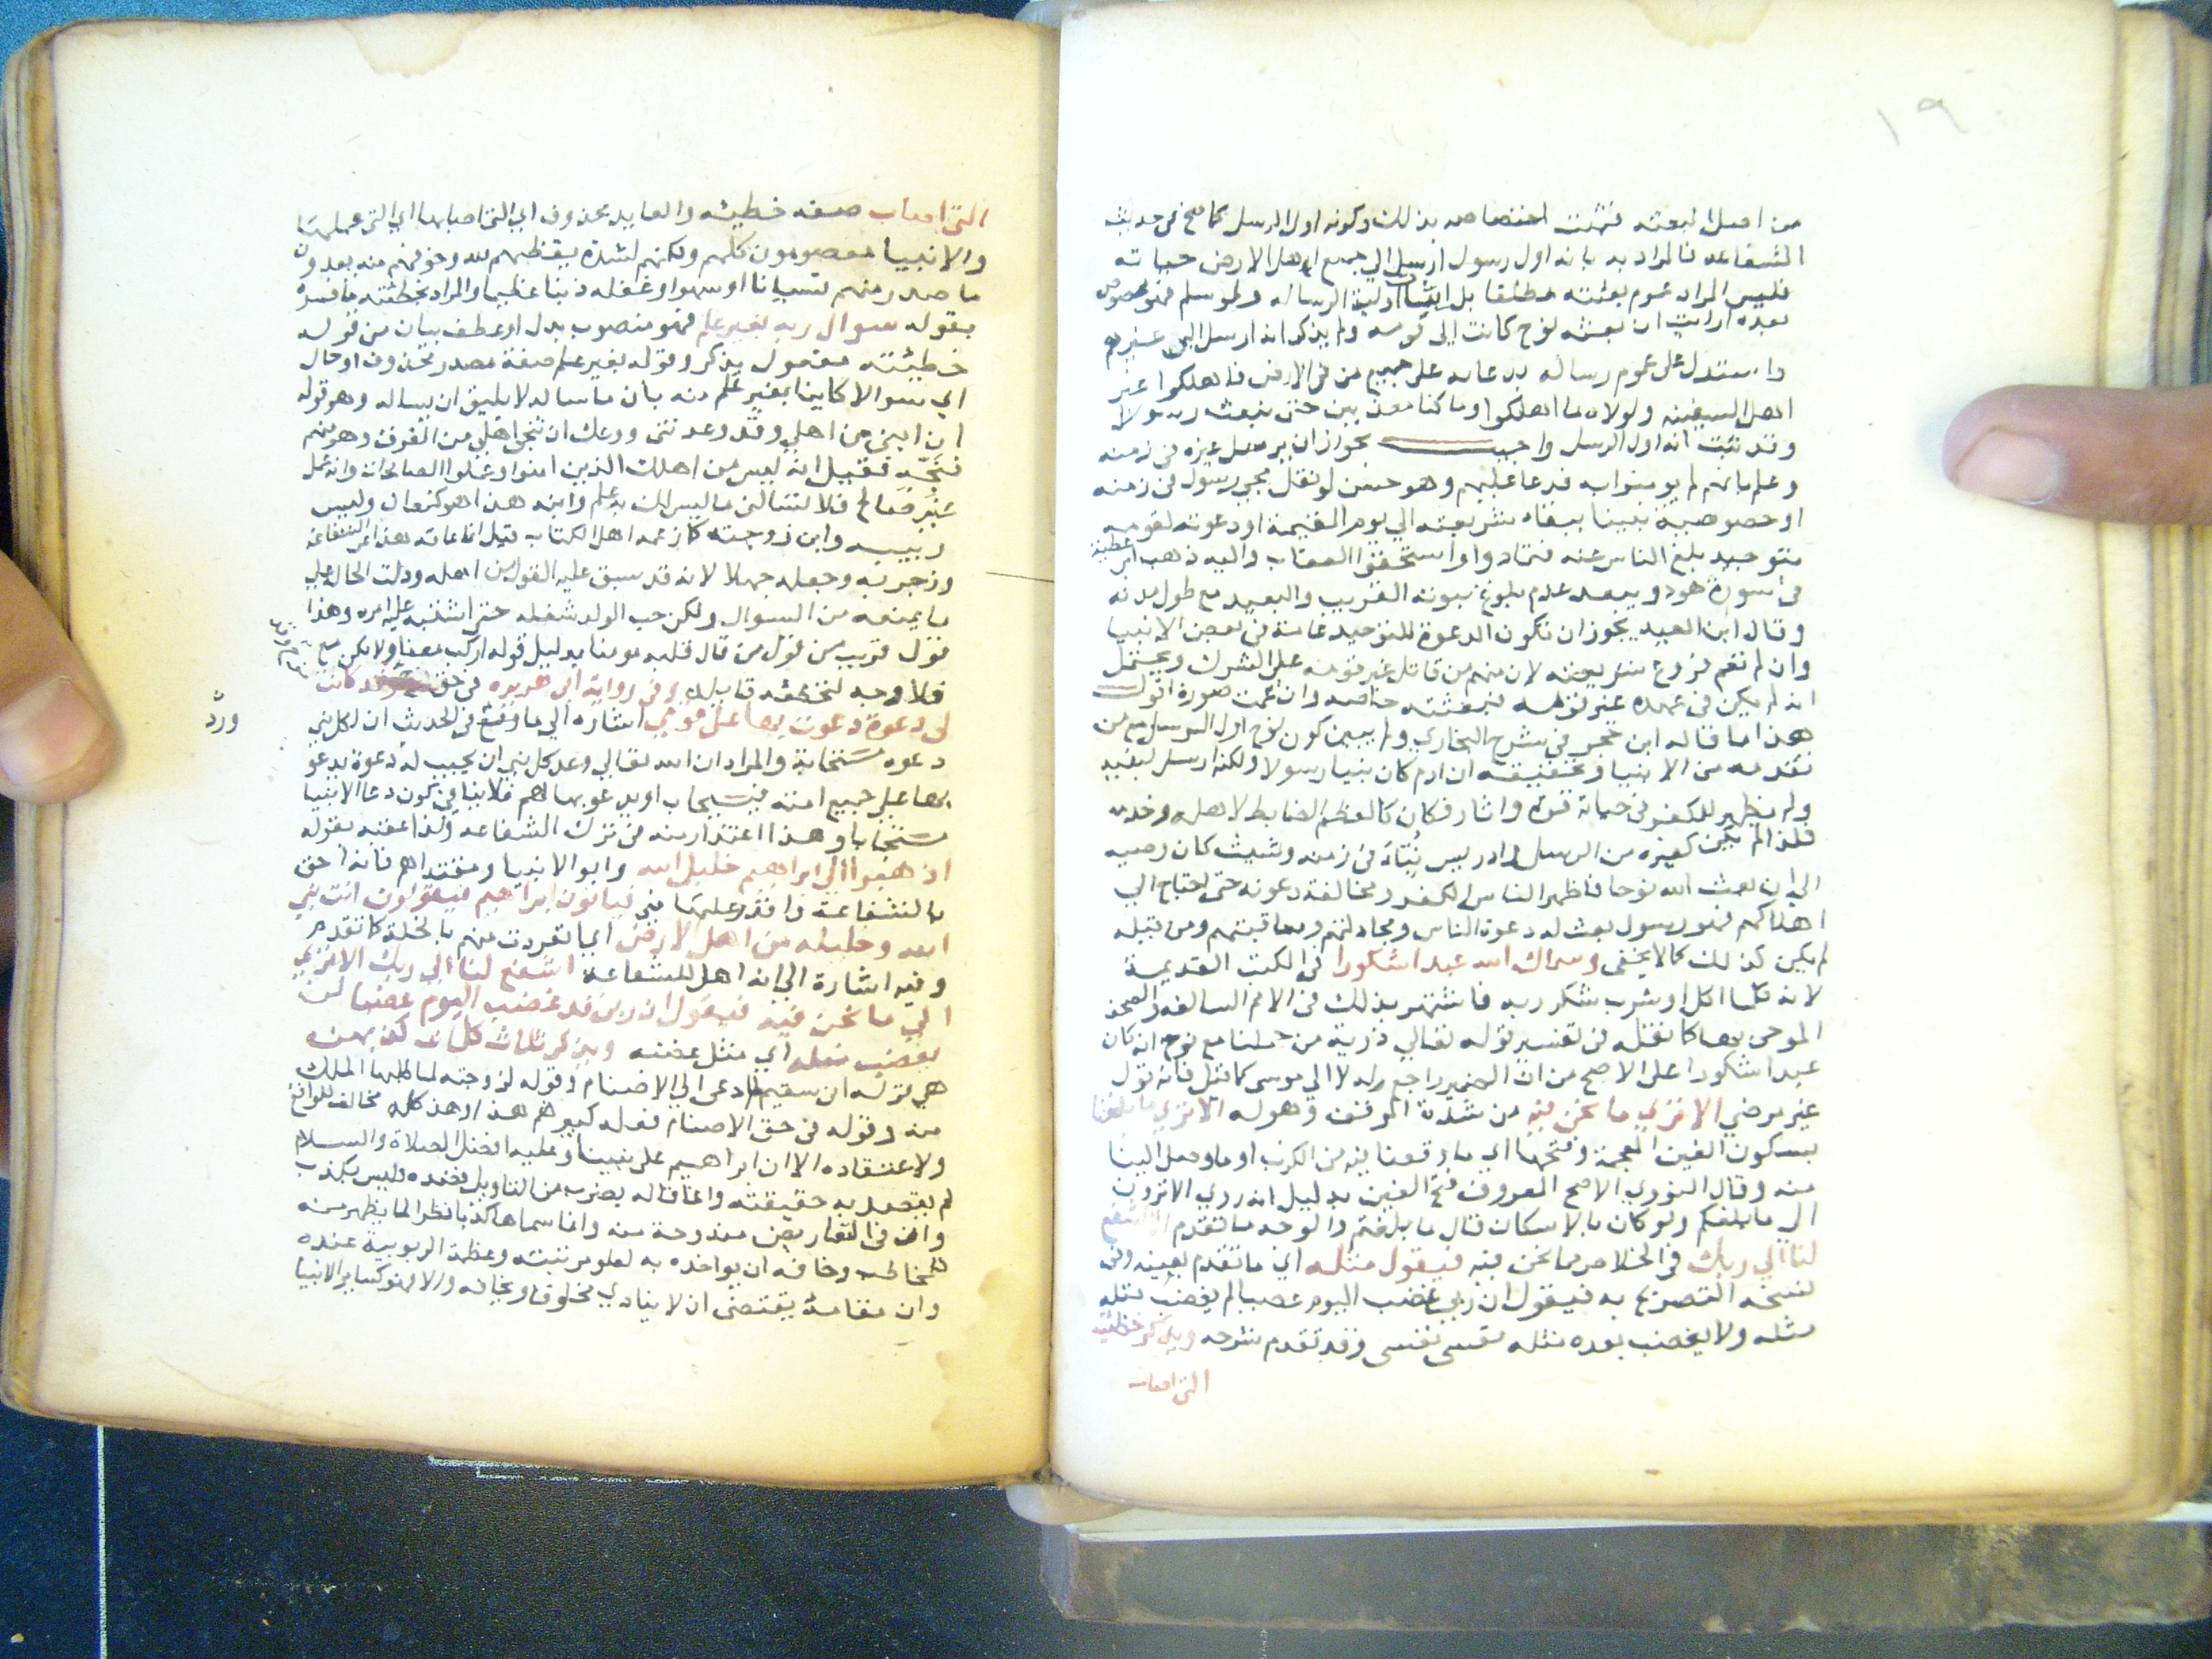 ١٩
من اصل البعثه فثبت اختصاصه بذلك وكونه اول الرسل كما صح في حديث
الشفاعه فالمراد به بانه اول رسول ارسل الي جميع اهل الارض حياته
فليس المراد عموم بعثته مطلقا بل اثبات اولية الرساله ولو سلم فهو مخصوص
بعده ارايت ان بعثه نوح كانت الي قومه ولم يذكر انه ارسل الي غيرهم
واستدل علي عموم رساله بدعايه علي جميع من في الارض فاهلكوا غير
اهل السفينه ولولاه لما اهلكوا وما كنا معذبين حتى نبعث رسولا
وقد ثبت انه اول الرسل واجيب بجواز ان يرسل غيره في زمنه
وعلم بانهم لم يومنوا به فدعا عليهم وهو حسن لو نقل مجي رسول في زمنه
او خصوصية نبينا ببقاء شريعته الي يوم القيمة او دعوته لقومه
بتوحيد بلغ الناس عنه فتمادوا واستحقوا العقاب واليه ذهب ابن عطية
في سورة هود ويبعد عدم بلوغ نبوته القريب والبعيد مع طول مدته
وقال ابن العيد يجوز ان تكون الدعوة للتوحيد عامة في بعض الانبيا
وان لم تعم فروع شريعته لان منهم من قاتل غير قومه علي الشرك ويحتمل
انه لم يكن في عهده غير قومه فبعثته خاصه وان عمت صورة اقول
هذا ما قاله ابن حجر في شرح البخاري ولم يبين كون نوح اول الرسل مع من
تقدمه من الانبيا وتحقيقه ان ادم كان نبيا رسولا ولكنه ارسل لبنيه
ولم يظهر للكفر في حياته قوة واثار فكان كالعظيم الضابط لاهله وخدمه
فلذا لم يكن كغيره من الرسل وادريس نبئ في زمنه وشيث كان وصيه
الي ان بعث الله نوحا فاظهر الناس الكفر ومخالفة دعوته حتى احتاج الي
اهلاكهم فهو رسول بعث له دعوة الناس ومجادلتهم ومعاقبتهم ومن قبله
لم يكن كذلك كما لا يخفى وسماك الله عبدا شكورا في الكتب القديمة
لانه كلما اكل او شرب شكر ربه فاشتهر بذلك في الامم السالفه والصحف
الموحى بها كما نقله في تفسير قوله تعالي ذرية من حملنا مع نوح انه كان
عبدا شكورا علي الاصح من ان الضمير راجع له لا الي موسى كما قيل فانه قول
غير مرضي الا ترى ما نحن فيه من شدة الموقف وهوله الا ترى ما بلغنا
بسكون الغين المعجمة وفتحها اي ما وقعنا فيه من الكرب او ما وصل الينا
منه وقال النووي الاصح المعروف فتح الغين بدليل انه روي الا ترون
الي ما بلغكم ولو كان بالاسكان قال ما بلغتم والوجه ما تقدم الا تشفع
لنا الي ربك في الخلاص مما نحن فيه فيقول مثله اي ما تقدم بعينه وفي
نسخه التصريح به فيقول ان ربي غضب اليوم غضبا لم يغضب قبله
مثله ولا يغضب بعده مثله نفسي نفسي وقد تقدم شرحه ويذكر خطيئته
التي اصاب
التي اصاب صفه خطيئه والعايد محذوف اي التي اصابها اي التي عملها
والانبيا معصومون كلهم ولكنهم لشدة يقظتهم لله وخوفهم منه يعدون
ما صدر منهم نسيانا او سهوا او غفله ذنبا عظيما والمراد بخطئته ما فسره
بقوله سوال ربه بغير علم فهو منصوب بدل او عطف بيان من قوله
خطيئته مفعول يذكر وقوله بغير علم صفة مصدر محذوف او حال
اي سوالا كاينا بغير علم منه بان ما ساله لا يليق ان يساله وهو قوله
ان ابني من اهلي وقد وعدتني وعدك ان تنجي اهلي من الغرق وهو منهم
فنجه فقيل انه ليس من اهلك الذين امنوا وعملوا الصالحات وانه عمل
غير صالح فلا تسالن ما ليس لك به علم وابنه هذا هو كنعان وليس
ربيبه وابن زوجته كما زعمه اهل الكتاب قيل انما عاتبه بهذا عن الشفاعة
وزجر به وجعله جهلا لانه قد سبق عليه القول من اهله ودلت الحال علي
ما يمنعه من السوال ولكن حب الولد شغله حتى اشتبه عليه امره وهذا
قول قريب من قول من قال ظنه مومنا بدليل قوله اركب معنا ولا تكن مع
فلا وجه لتخطئه قايله وفي رواية ابي هريره في حق وقد كانت
لي دعوة دعوت بها على قومي اشارة الي ما وقع في الحديث ان لكل نبي
ورد
دعوه مستجابة والمراد ان الله تعالي وعد كل نبي ان يجيب له دعوة يدعو
بها علي جميع امته فيستجاب او يدعو بها لهم فلا ينافي كون دعا الانبيا
مستجابا وهذا اعتذار منه في ترك الشفاعه ولذا عقبه بقوله
اذهبوا الي ابراهيم خليل الله وابو الانبيا ومقتداهم فانه احق
بالشفاعة واقدر عليها مني فياتون ابراهيم فيقولون انت نبي
الله وخليله من اهل الارض اي انفردت منهم بالخلة كما تقدم
وفيه اشارة الي انه اهل للشفاعه اشفع لنا الي ربك الا ترى
الي ما نحن فيه فيقول ان ربي قد غضب اليوم غضبا لم
يغضب مثله اي مثل غضبه ويذكر ثلاث كلمات كذبهن
هي قوله اني سقيم لما دعى الي الاصنام وقوله لزوجته لما طلبها الملك
منه وقوله في حق الاصنام فعله كبيرهم هذا وهذا كله مخالف للواقع
ولاعتقاده الا ان ابراهيم علي نبينا وعليه افضل الصلاة والسلام
لم يقصد به حقيقته وانما قاله بضرب من التاويل يقصده وليس بكذب
وان في المعاريض مندوحة منه وانما سماها كذبا نظرا لما يظهر منه
للمخاطب وخافه ان يواخذه به لعلو مرتبته وعظمة الربوبية عنده
وان مقامه يقتضي ان لا ينادي مخلوقا ويخافه والا فهو كساير الانبيا